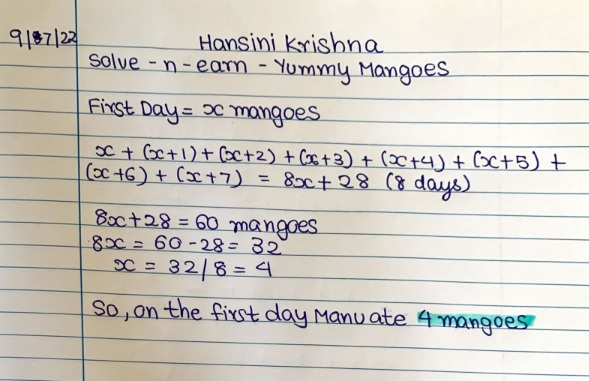 9/07/22
Hansini Krishna
Solve - n - earn - Yummy Mangoes
First Day = x mangoes
x + (x+1) + (x+2) + (x+3) + (x+4) + (x+5) +
(x+6) + (x+7) = 8x + 28 (8 days)
8x + 28 = 60 mangoes
8x = 60 - 28 = 32
x = 32/8 = 4
So, on the first day Manu ate 4 mangoes